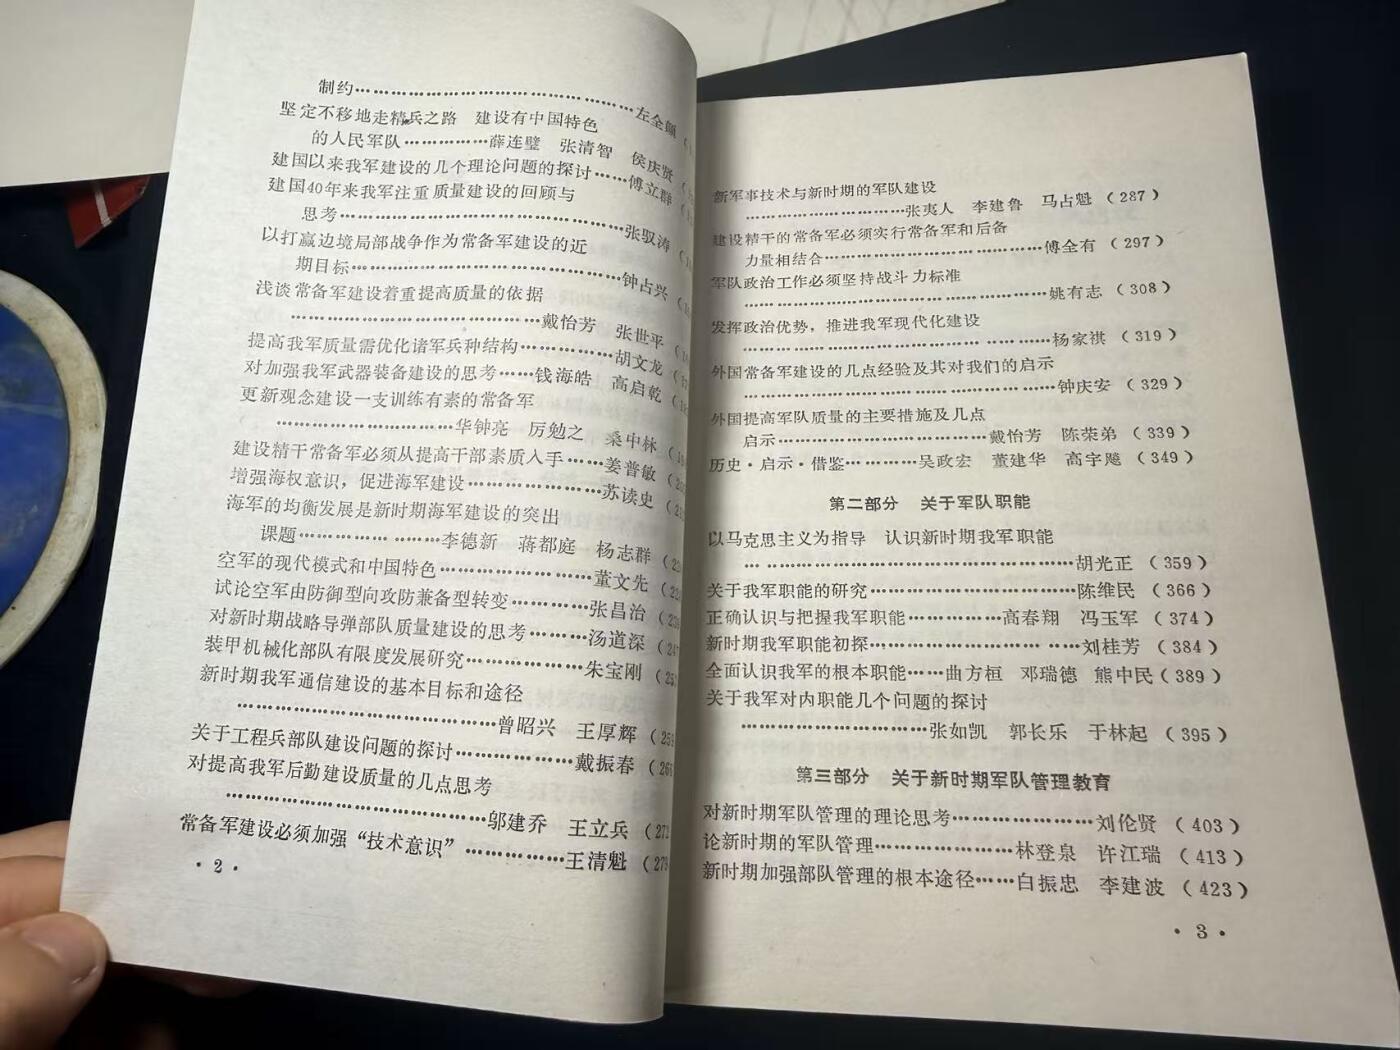 制约……………………………………左全颠（
坚定不移地走精兵之路　建设有中国特色
的人民军队……………薛连璧　张清智　侯庆贤（
建国以来我军建设的几个理论问题的探讨……傅立群（
建国40年来我军注重质量建设的回顾与
思考……………………………………张驭涛（
以打赢边境局部战争作为常备军建设的近
期目标…………………………………钟占兴（
浅谈常备军建设着重提高质量的依据
……………………………………戴怡芳　张世平（
提高我军质量需优化诸军兵种结构……………胡文龙（
对加强我军武器装备建设的思考……钱海皓　高启乾（
更新观念建设一支训练有素的常备军
…………………………华钟亮　厉勉之　桑中林（
建设精干常备军必须从提高干部素质入手……姜普敏（
增强海权意识，促进海军建设…………………苏读史（
海军的均衡发展是新时期海军建设的突出
课题……………………李德新　蒋都庭　杨志群（
空军的现代模式和中国特色……………………董文先（
试论空军由防御型向攻防兼备型转变…………张昌治（
对新时期战略导弹部队质量建设的思考………汤道深（
装甲机械化部队有限度发展研究………………朱宝刚（
新时期我军通信建设的基本目标和途径
……………………………………曾昭兴　王厚辉（259
关于工程兵部队建设问题的探讨………………戴振春（
对提高我军后勤建设质量的几点思考
……………………………………邬建乔　王立兵（
常备军建设必须加强“技术意识”……………王清魁（279
·2·
新军事技术与新时期的军队建设
……………………张夷人　李建鲁　马占魁（287）
建设精干的常备军必须实行常备军和后备
力量相结合…………………………………傅全有（297）
军队政治工作必须坚持战斗力标准
………………………………………………姚有志（308）
发挥政治优势，推进我军现代化建设
………………………………………………杨家祺（319）
外国常备军建设的几点经验及其对我们的启示
………………………………………………钟庆安（329）
外国提高军队质量的主要措施及几点
启示………………………………戴怡芳　陈荣弟（339）
历史·启示·借鉴…………吴政宏　董建华　高宇飚（349）
第二部分　关于军队职能
以马克思主义为指导　认识新时期我军职能
………………………………………………胡光正（359）
关于我军职能的研究……………………………陈维民（366）
正确认识与把握我军职能……………高春翔　冯玉军（374）
新时期我军职能初探……………………………刘桂芳（384）
全面认识我军的根本职能……曲方桓　邓瑞德　熊中民（389）
关于我军对内职能几个问题的探讨
……………………………张如凯　郭长乐　于林起（395）
第三部分　关于新时期军队管理教育
对新时期军队管理的理论思考…………………刘伦贤（403）
论新时期的军队管理…………………林登泉　许江瑞（413）
新时期加强部队管理的根本途径……白振忠　李建波（423）
·3·